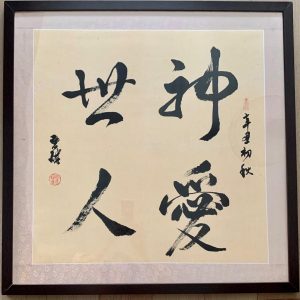 辛丑初秋
神愛
世人